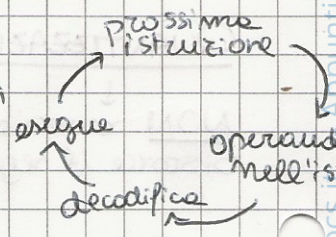 prossima
istruzione
operand
nell'is
decodifica
esegue